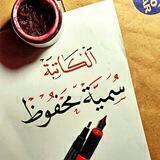 الكاتبة
سمية محفوظ